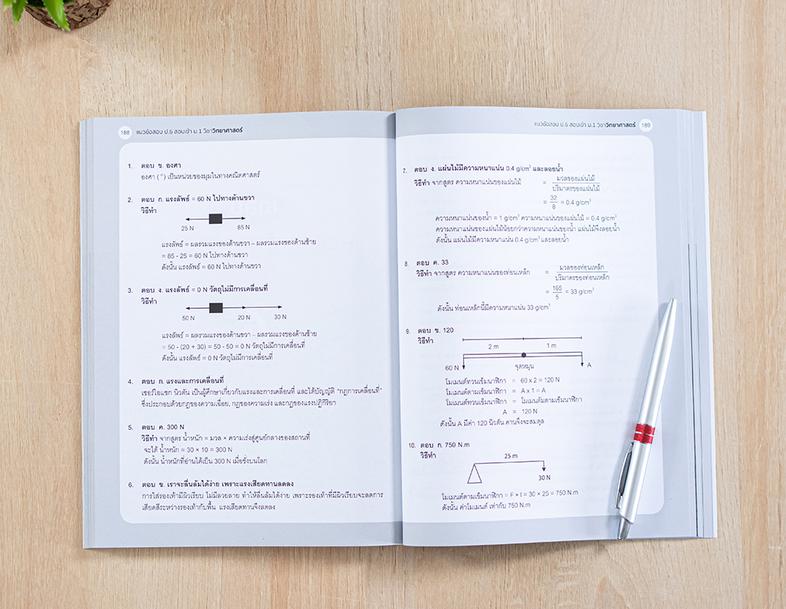 188 แนวข้อสอบ ป.6 สอบเข้า ม.1 วิชาวิทยาศาสตร์
1. ตอบ ข. องศา
องศา ( ° ) เป็นหน่วยของมุมในทางคณิตศาสตร์
2. ตอบ ก. แรงลัพธ์ = 60 N ไปทางด้านขวา
วิธีทำ
25 N 85 N
แรงลัพธ์ = ผลรวมแรงของด้านขวา - ผลรวมแรงของด้านซ้าย
= 85 - 25 = 60 N ไปทางด้านขวา
ดังนั้น แรงลัพธ์ = 60 N ไปทางด้านขวา
3. ตอบ ง. แรงลัพธ์ = 0 N วัตถุไม่มีการเคลื่อนที่
วิธีทำ
50 N 20 N 30 N
แรงลัพธ์ = ผลรวมแรงของด้านขวา - ผลรวมแรงของด้านซ้าย
= 50 - (20 + 30) = 50 - 50 = 0 N วัตถุไม่มีการเคลื่อนที่
ดังนั้น แรงลัพธ์ = 0 N วัตถุไม่มีการเคลื่อนที่
4. ตอบ ก. แรงและการเคลื่อนที่
เซอร์ไอแซก นิวตัน เป็นผู้ศึกษาเกี่ยวกับแรงและการเคลื่อนที่ และได้บัญญัติ "กฎการเคลื่อนที่"
ซึ่งประกอบด้วยกฎของความเฉื่อย, กฎของความเร่ง และกฎของแรงปฏิกิริยา
5. ตอบ ค. 300 N
วิธีทำ จากสูตร น้ำหนัก = มวล × ความเร่งสู่ศูนย์กลางของสถานที่
จะได้ น้ำหนัก = 30 × 10 = 300 N
ดังนั้น น้ำหนักที่อ่านได้เป็น 300 N เมื่อชั่งบนโลก
6. ตอบ ข. เราจะลื่นล้มได้ง่าย เพราะแรงเสียดทานลดลง
การใส่รองเท้ามีผิวเรียบ ไม่มีลวดลาย ทำให้ลื่นล้มได้ง่าย เพราะรองเท้าที่มีผิวเรียบจะลดการ
เสียดสีระหว่างรองเท้ากับพื้น แรงเสียดทานจึงลดลง
แนวข้อสอบ ป.6 สอบเข้า ม.1 วิชาวิทยาศาสตร์ 189
7. ตอบ ง. แผ่นไม้มีความหนาแน่น 0.4 g/cm³ และลอยน้ำ
วิธีทำ จากสูตร ความหนาแน่นของแผ่นไม้ = มวลของแผ่นไม้
ปริมาตรของแผ่นไม้
= 32/8 = 0.4 g/cm³
ความหนาแน่นของน้ำ = 1 g/cm³ ความหนาแน่นของแผ่นไม้ = 0.4 g/cm³
ความหนาแน่นของแผ่นไม้น้อยกว่าความหนาแน่นของน้ำ แผ่นไม้จึงลอยน้ำ
ดังนั้น แผ่นไม้มีความหนาแน่น 0.4 g/cm³ และลอยน้ำ
8. ตอบ ค. 33
วิธีทำ จากสูตร ความหนาแน่นของท่อนเหล็ก = มวลของท่อนเหล็ก
ปริมาตรของท่อนเหล็ก
= 165/5 = 33 g/cm³
ดังนั้น ท่อนเหล็กนี้มีความหนาแน่น 33 g/cm³
9. ตอบ ข. 120
วิธีทำ
2 m 1 m
60 N จุดหมุน A
โมเมนต์ทวนเข็มนาฬิกา = 60 x 2 = 120 N
โมเมนต์ตามเข็มนาฬิกา = A x 1 = A
โมเมนต์ทวนเข็มนาฬิกา = โมเมนต์ตามเข็มนาฬิกา
A = 120 N
ดังนั้น A มีค่า 120 นิวตัน คานจึงจะสมดุล
10. ตอบ ก. 750 N.m
วิธีทำ
25 m
30 N
โมเมนต์ตามเข็มนาฬิกา = F × l = 30 × 25 = 750 N.m
ดังนั้น ค่าโมเมนต์ เท่ากับ 750 N.m